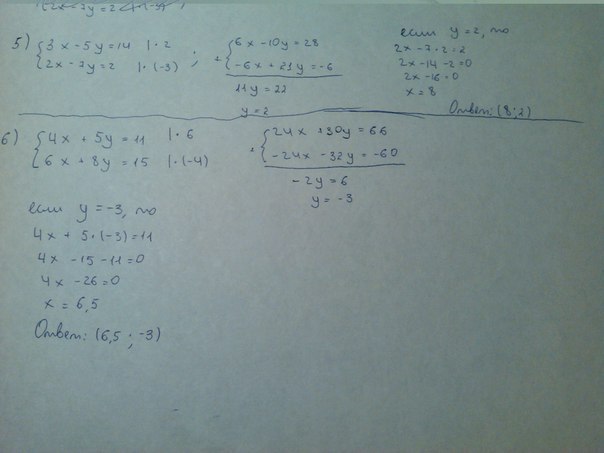 5) {3x - 5y = 14 | · 2
{2x - 7y = 2 | · (-3) ;
+ {6x - 10y = 28
{-6x + 21y = -6
11y = 22
y = 2
если y = 2, то
2x - 7 · 2 = 2
2x - 14 - 2 = 0
2x - 16 = 0
x = 8
Ответ: (8 ; 2)
6) {4x + 5y = 11 | · 6
{6x + 8y = 15 | · (-4)
+ {24x + 30y = 66
{-24x - 32y = -60
-2y = 6
y = -3
если y = -3, то
4x + 5 · (-3) = 11
4x - 15 - 11 = 0
4x - 26 = 0
x = 6,5
Ответ: (6,5 ; -3)